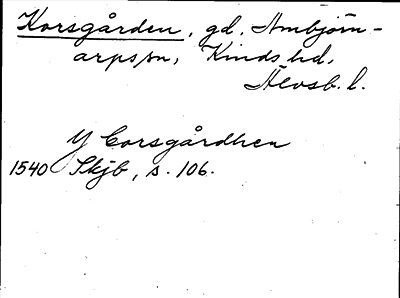 Korsgården, gd, Ambjörn-
arps sn, Kinds hd,
Älvsb. l.
Y Corsgårdhen
1540 Skjb, s. 106.